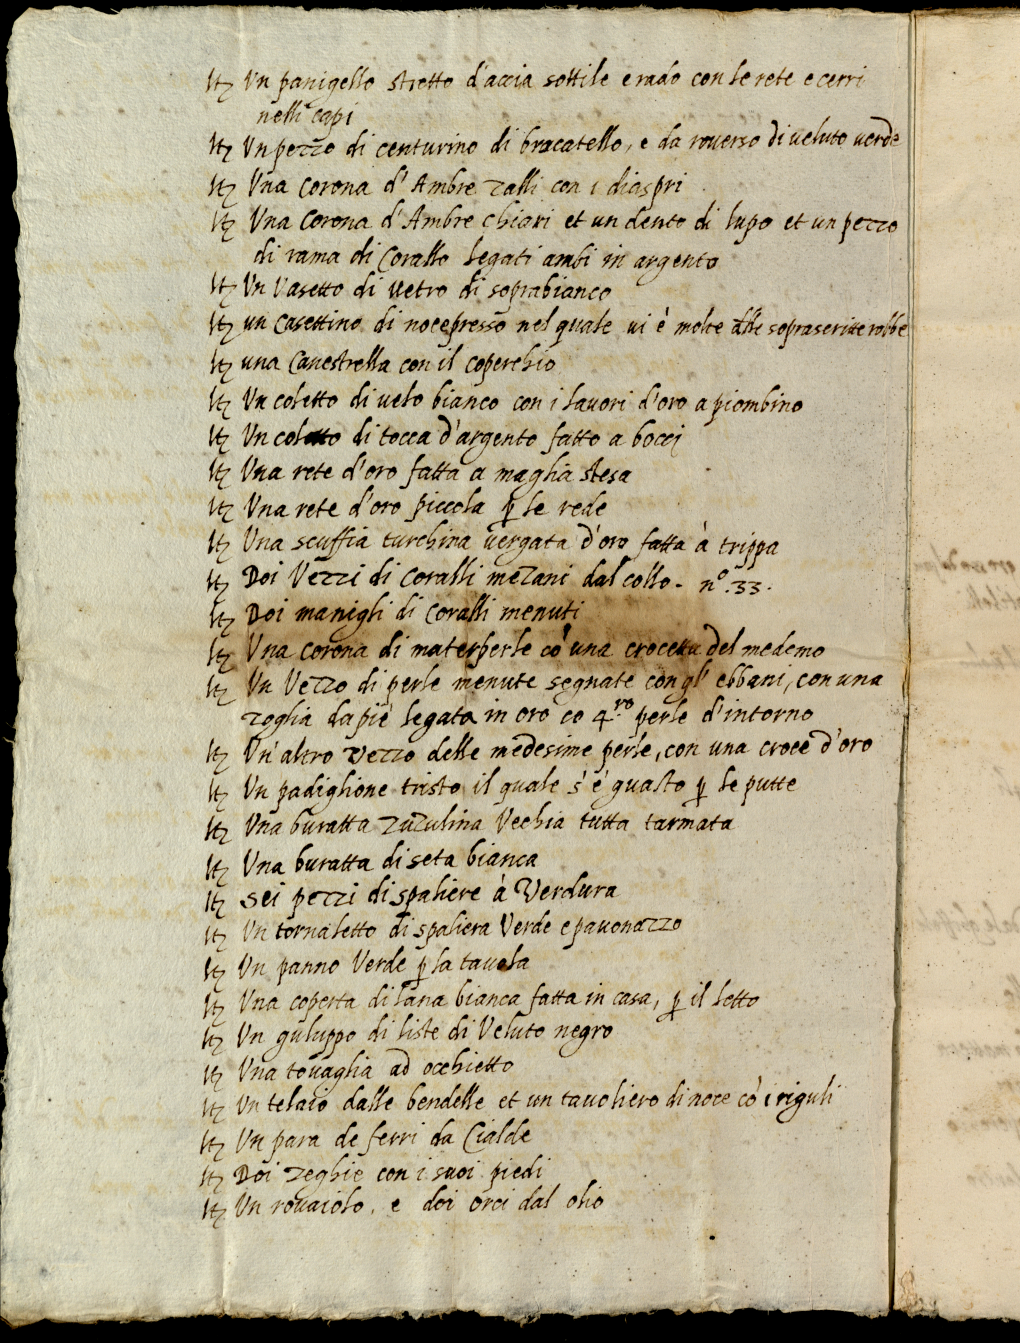 Itz Un panigello stretto d'accia sottile e rado con le rete e cerri
nelli capi
Itz Un pezzo di centurino di bracatello, e da roverso di veluto verde
Itz Una corona d'Ambre zalli con i diaspri
Itz Una Corona d'Ambre chiari et un dente di lupo et un pezzo
di rama di Corallo legati ambi in argento
Itz Un Vasetto di vetro di soprabianco
Itz un Casettino di nocepresso nel quale vi è molte delle soprascritte robbe
Itz una Canestrella con il coperchio
Itz Un coletto di velo bianco con i lavori d'oro a piombino
Itz Un coletto di tocca d'argento fatto a bocci
Itz Una rete d'oro fatta a maglia stesa
Itz Una rete d'oro piccola p le rede
Itz Una scuffia turchina vergata d'oro fatta à trippa
Itz Doi Vezzi di Coralli mezani dal collo. nº. 33.
Itz Doi manigli di Coralli menuti
Itz Una corona di materperle cō una crocetta del medemo
Itz Un Vezzo di perle menute segnate con gl' ebbani, con una
zoglia da piè legata in oro co 4.ro perle d'intorno
Itz Un' altro vezzo delle medesime perle, con una croce d'oro
Itz Un padiglione tristo il quale s'è guasto p le putte
Itz Una buratta zuzulina Vechia tutta tarmata
Itz Una buratta di seta bianca
Itz Sei pezzi di spaliere à Verdura
Itz Un tornaletto di spaliera Verde e pavonazzo
Itz Un panno Verde p la tavola
Itz Una coperta di lana bianca fatta in casa, p il letto
Itz Un guluppo di liste di Veluto negro
Itz Una tovaglia ad occhietto
Itz Un telaio dalle bendelle et un tavoliero di noce cō i riguli
Itz Un para de ferri da Cialde
Itz Doi zeghie con i suoi piedi
Itz Un rovaiolo, e doi orci dal olio